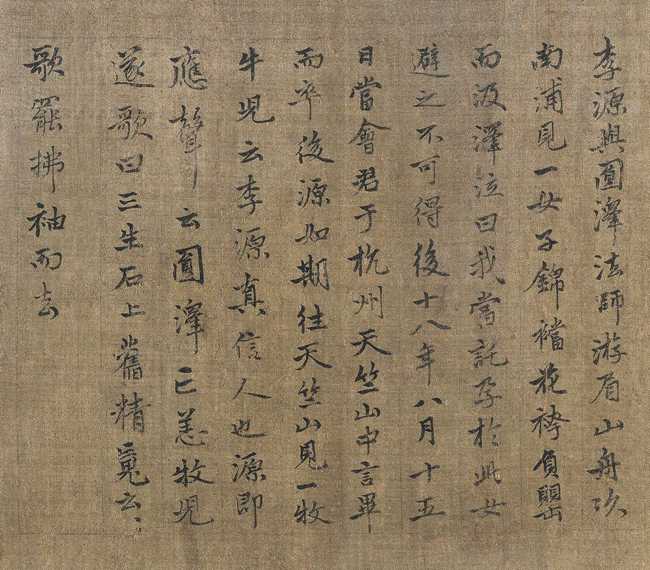 李源與圓澤法師游眉山舟次
南浦見一女子錦襠花袴負甖
而汲澤泣曰我當託孕於此女
避之不可得後十八年八月十五
日當會君于杭州天竺山中言畢
而卒後源如期往天竺山見一牧
牛児云李源真信人也源即
應聲云圓澤亡恙牧児
遂歌曰三生石上舊精䰟云〻
歌罷拂袖而去